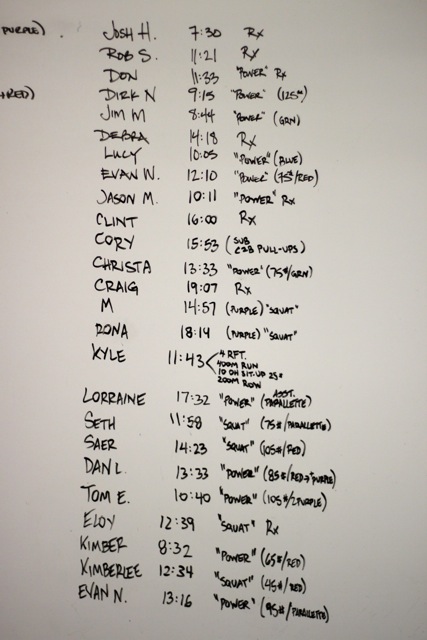 PURPLE) .
JOSH H. 7:30 Rx
ROB S. 11:21 Rx
DON 11:33 "POWER" Rx
+RED)
DIRK N 9:15 "POWER" (125#)
JIM M 8:44 "POWER" (GRN)
DEBRA 14:18 Rx
LUCY 10:05 "POWER" (BLUE)
EVAN W. 12:10 "POWER" (75#/RED)
JASON M. 10:11 "POWER" Rx
CLINT 16:00 Rx
CORY 15:53 (SUB
C2B PULL-UPS)
CHRISTA 13:33 "POWER" (75#/GRN)
CRAIG 19:07 Rx
M 14:57 (PURPLE) "SQUAT"
RONA 18:14 (PURPLE) "SQUAT"
KYLE 11:43 < 4 RFT.
400M RUN
10 OH SIT-UP 25#
200M ROW
LORRAINE 17:32 "POWER" (ASST. PARALLETTE)
SETH 11:58 "SQUAT" (75#/PARALLETTE)
SAER 14:23 "SQUAT" (105#/RED)
DAN L. 13:33 "POWER" (85#/RED→+PURPLE)
TOM E. 10:40 "POWER" (105#/2PURPLE)
ELOY 12:39 "SQUAT" Rx
KIMBER 8:32 "POWER" (65#/RED)
KIMBERLEE 12:34 "SQUAT" (45#/RED)
EVAN N. 13:16 "POWER" (95#/PARALLETTE)